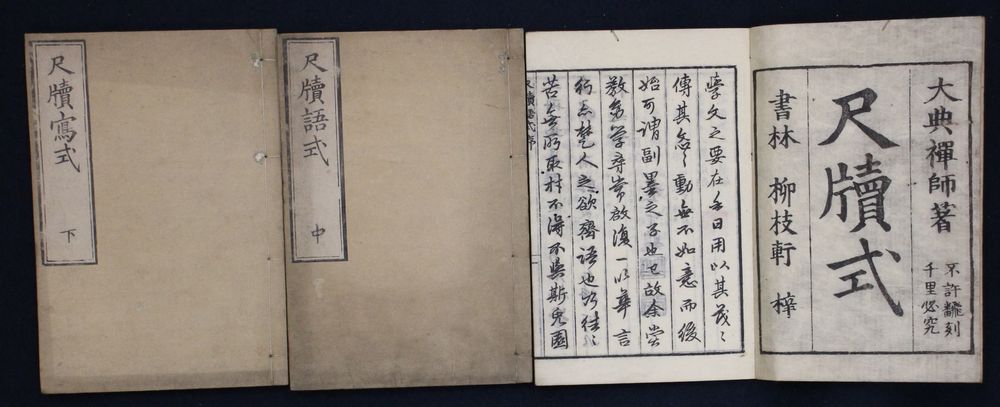 大典禪師著
不許飜刻
千里必究
尺牘式
書林 柳枝軒 梓
學文之要在乎日用以其
傳其 動無不如意而後
始可謂副墨之子也已故余嘗
教 學尋常啟復一以華言
楚人之欲齊語也 往〻
苦無所取材不得不 斯兔園
尺牘語式序
尺牘語式
中
尺牘寫式
下